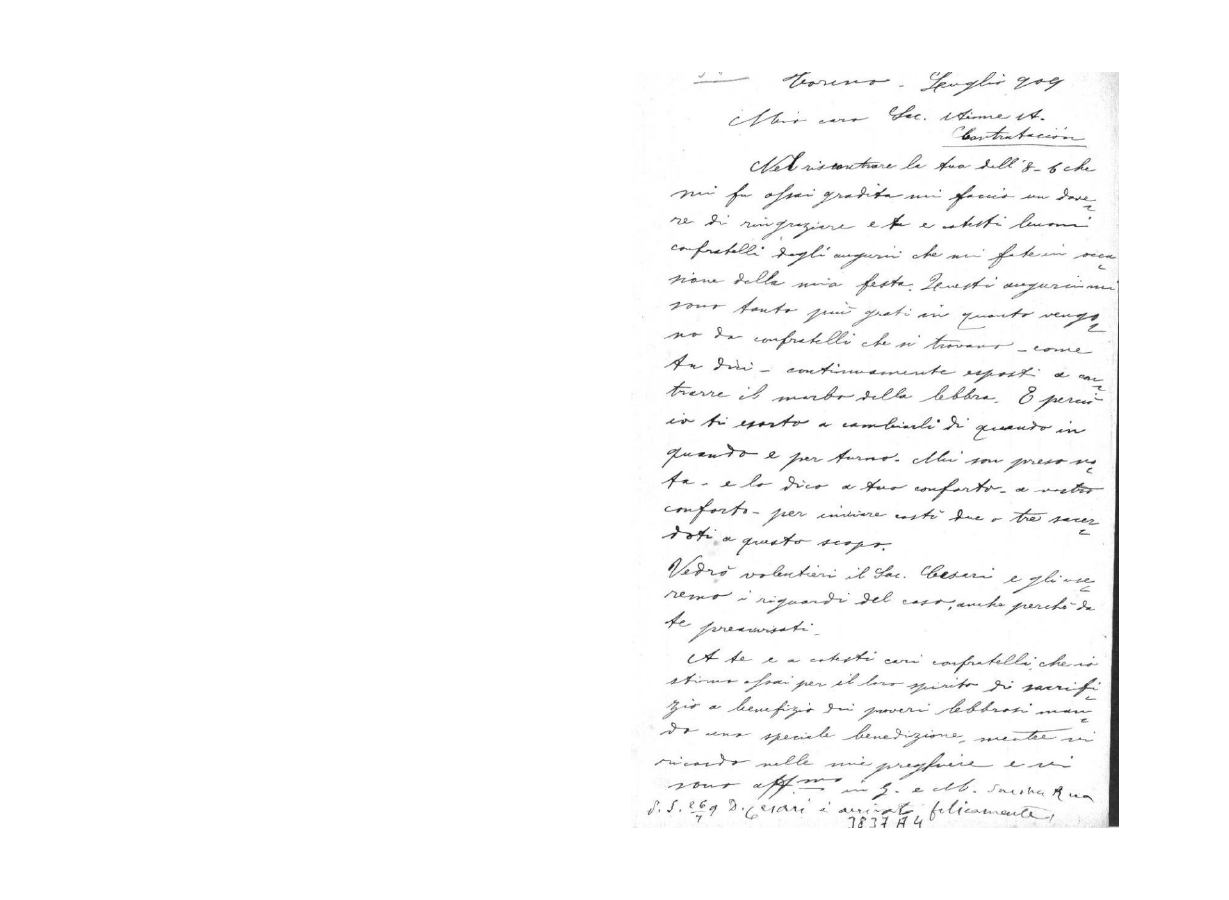 Torino - Luglio 909
Mio caro Sac. Aime A.
Contratación
Nel riscontrare la tua dell' 8-6 che
mi fu assai gradita mi faccio un dove=
re di ringraziare e te e cotesti buoni
confratelli degli augurii che mi fate in occa=
sione della mia festa. Questi augurii mi
sono tanto più grati in quanto vengo=
no da confratelli che si trovano - come
tu dici - continuamente esposti a con=
trarre il morbo della lebbra. E perciò
io ti esorto a cambiarli di quando in
quando e per turno. Mi son preso no=
ta - e lo dico a tuo conforto - a vostro
conforto - per inviare costì due o tre sacer=
doti a questo scopo.
Vedrò volentieri il Sac. Cesari e gli use=
remo i riguardi del caso, anche perchè da
te preavvisati.
A te e a cotesti cari confratelli, che io
stimo assai per il loro spirito di sacrifi=
zio a benefizio dei poveri lebbrosi man=
do una speciale benedizione, mentre vi
ricordo nelle mie preghiere e vi
sono aff.mo in G. e M. Sac. Rua
P.S. 26/7 9 D. Cesari è arrivato felicemente.
3837 A 4